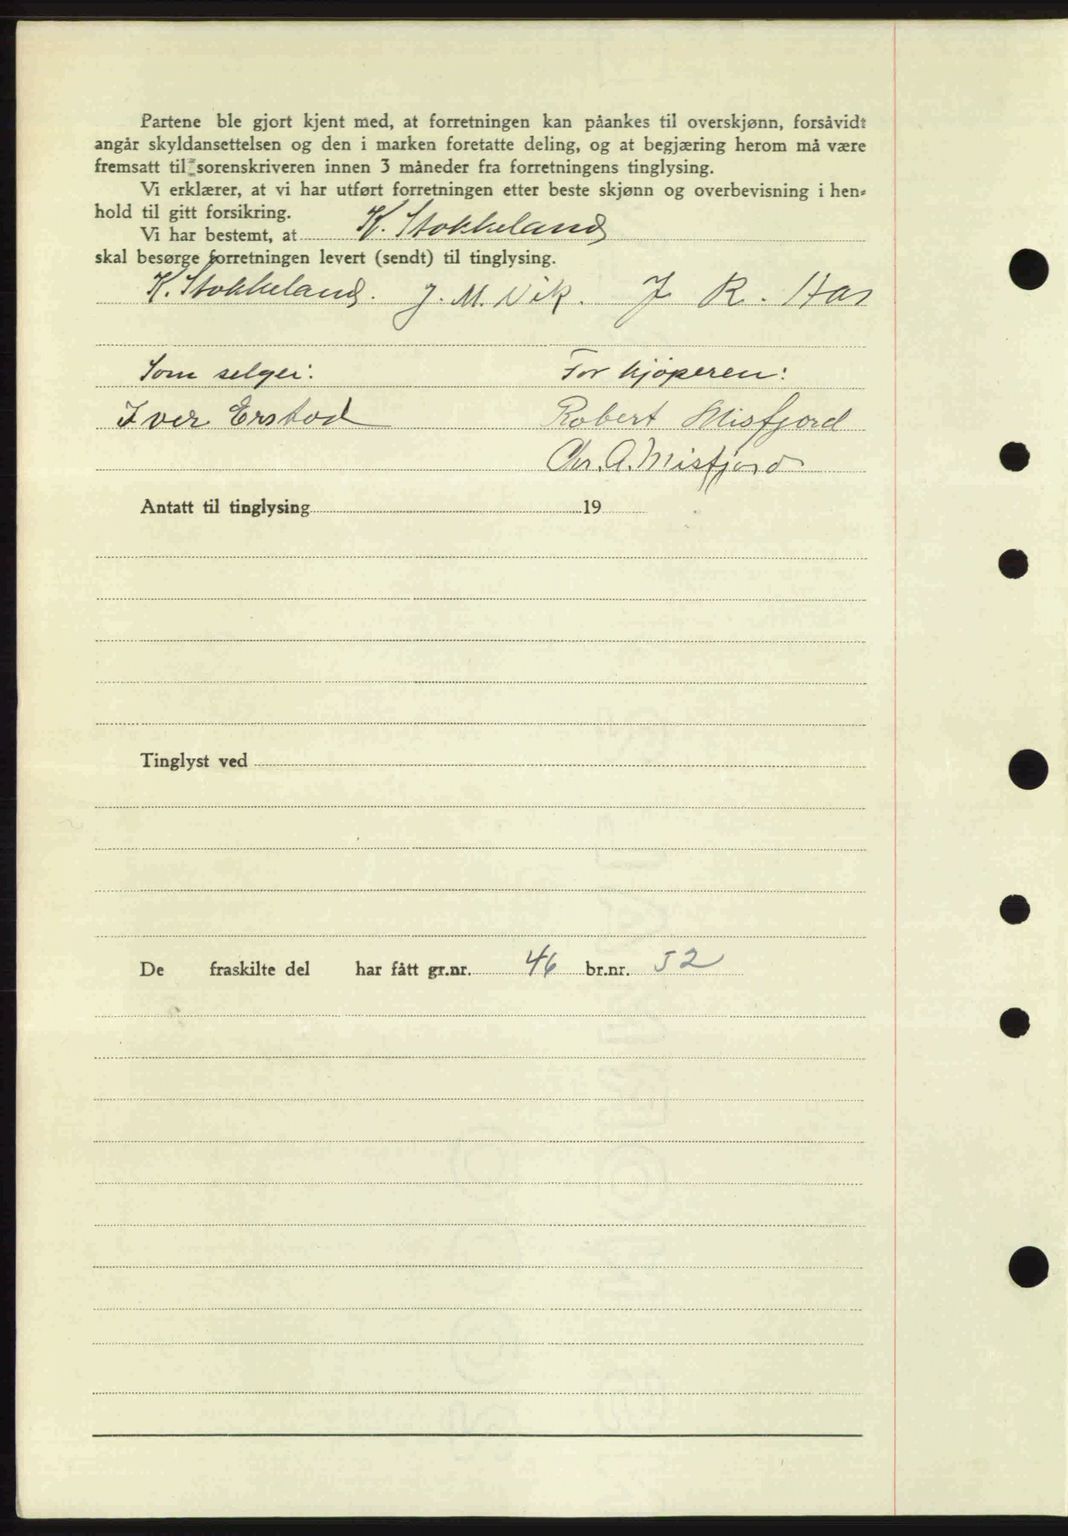 Partene ble gjort kjent med, at forretningen kan påankes til overskjønn, forsåvidt
angår skyldansettelsen og den i marken foretatte deling, og at begjæring herom må være
fremsatt til sorenskriveren innen 3 måneder fra forretningens tinglysing.
Vi erklærer, at vi har utført forretningen etter beste skjønn og overbevisning i hen-
hold til gitt forsikring.
Vi har bestemt, at K. Stokkeland
skal besørge forretningen levert (sendt) til tinglysing.
K. Stokkeland. J. M. Vik. J. R. Has
Som selger: For kjøperen:
Iver Erstad Robert Misfjord
Chr. A. Misfjord
Antatt til tinglysing 19
Tinglyst ved
De fraskilte del har fått gr.nr. 46 br.nr. 52